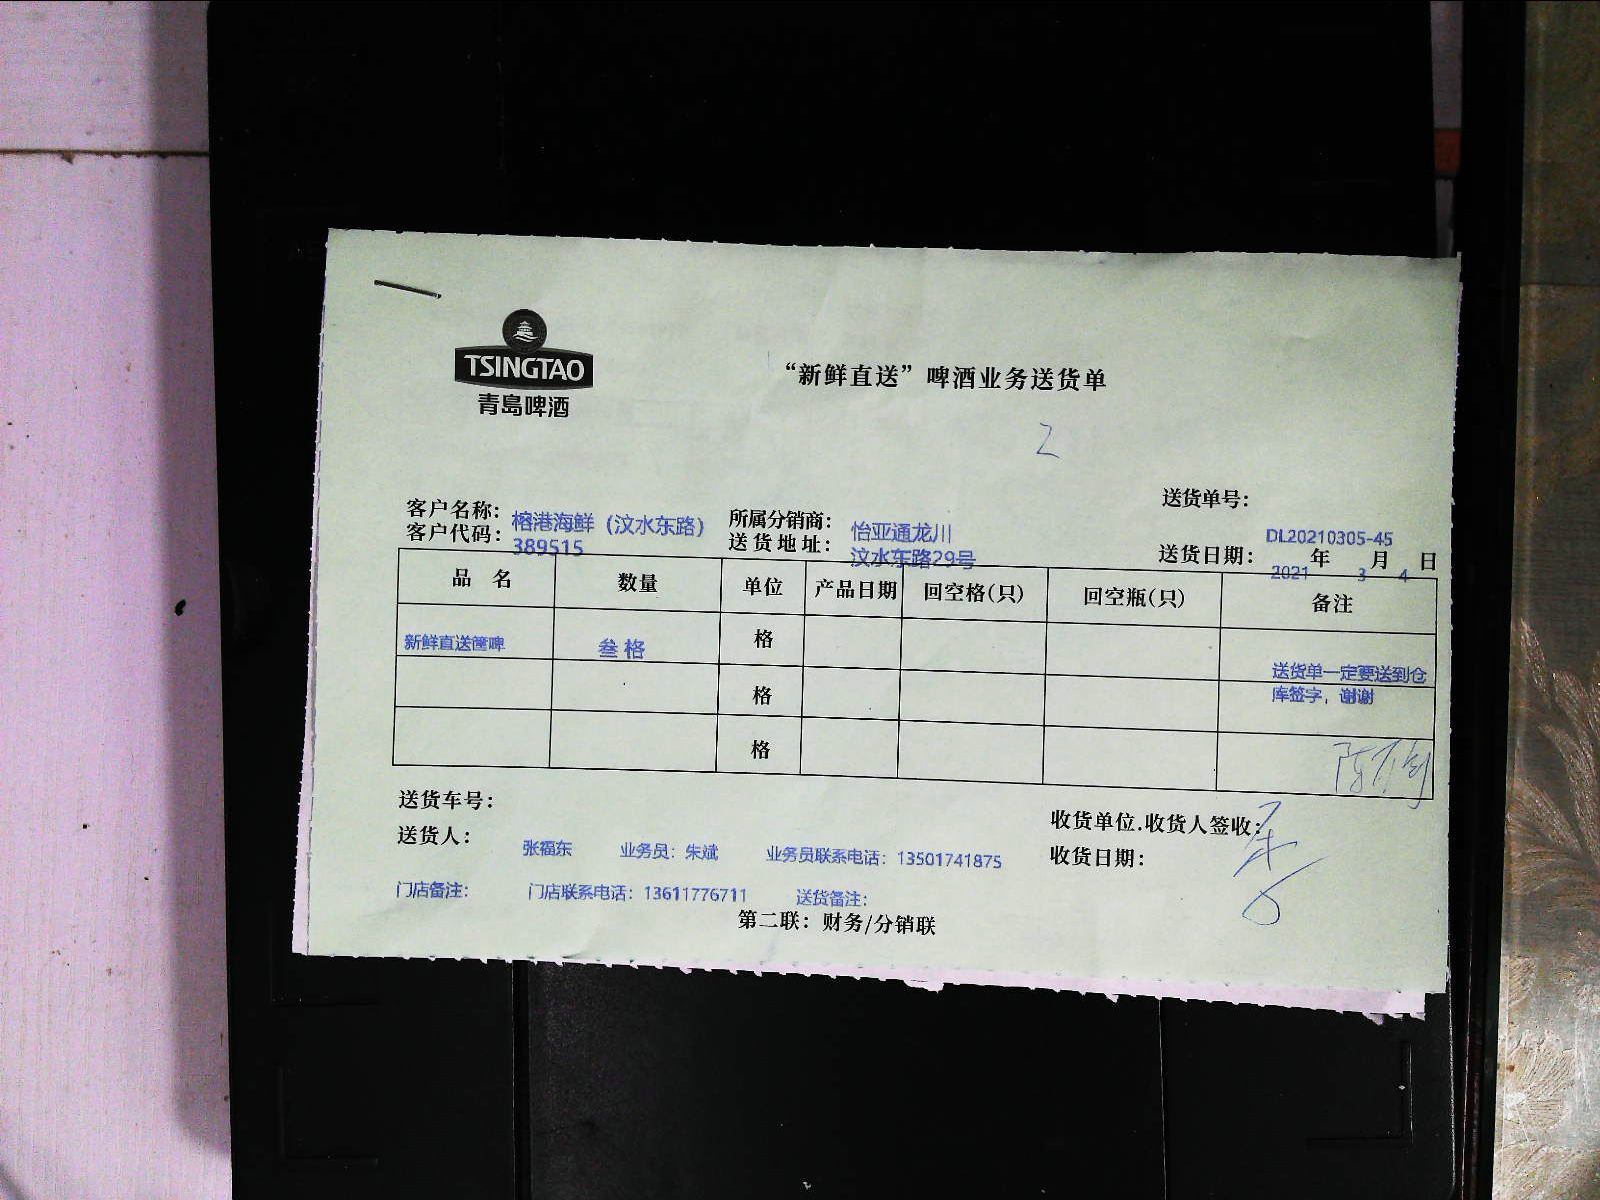 TSINGTAO
青岛啤酒
“新鲜直送”啤酒业务送货单
2
送货单号：
DL20210305-45
客户名称：榕港海鲜（汶水东路） 所属分销商：怡亚通龙川
客户代码：389515 送货地址：汶水东路29号 送货日期：2021年3月4日
品名 数量 单位 产品日期 回空格(只) 回空瓶(只) 备注
新鲜直送筐啤 叁格 格 送货单一定要送到仓
格 库签字，谢谢
格
送货车号：
收货单位.收货人签收：
送货人：张福东 业务员：朱斌 业务员联系电话：13501741875 收货日期：
门店备注： 门店联系电话：13611776711 送货备注：
第二联：财务/分销联